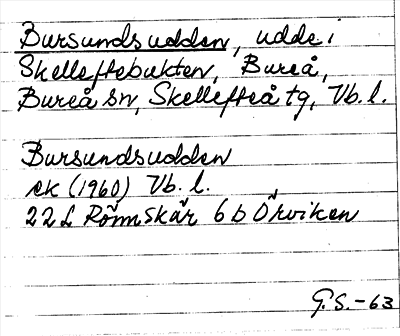 Bursundsudden, udde i
Skelleftebukten, Bureå,
Bureå sn, Skellefteå tg, Vb. l.
Bursundsudden
ek (1960) Vb. l.
22 L Rönnskär 6 b Örviken
G. S. - 63